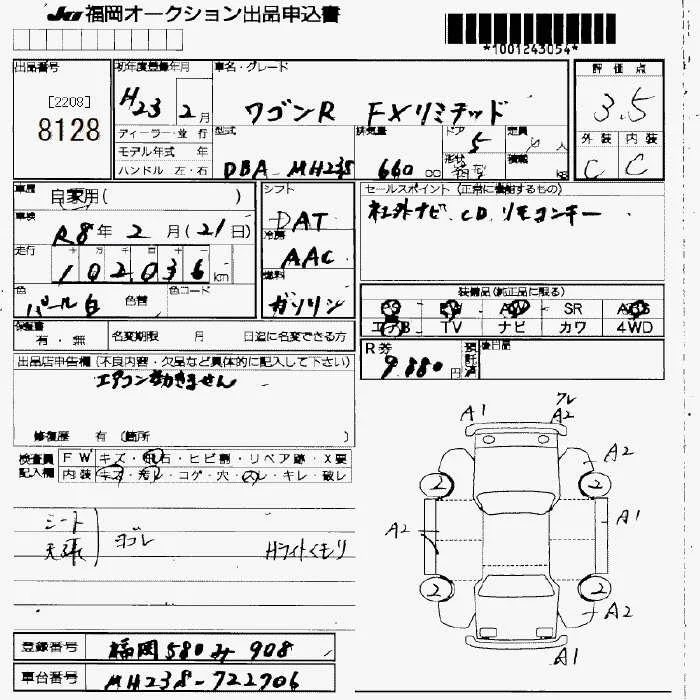 JU 福岡オークション出品申込書
*1001243054*
出品番号
[2208]
8128
初年度登録年月
H23 2月
ディーラー・並行
モデル年式 年
ハンドル 左・右
車名・グレード
ワゴンR FXリミテッド
型式
DBA-MH23S
排気量
660 cc
ドア
5
形状
定員
人
積載
kg
評価点
3.5
外装 内装
C C
車歴
自家用( )
車検
R8年 2月(21日)
走行
102,036 km
色
パール白
色替
色コード
シフト
DAT
冷房
AAC
燃料
ガソリン
セールスポイント (正常に機能するもの)
社外ナビ、CD、リモコンキー
装備品(純正品に限る)
SR
エアB TV ナビ カワ 4WD
保証書
有・無
名変期限 月 日迄に名変できる方
R券
9,880円
預託済
後日品
出品店申告欄(不良内容・欠品など具体的に記入して下さい)
エアコン効きません
修復歴 有 〔箇所 〕
検査員記入欄
FW キズ・飛石・ヒビ割・リペア跡・X要
内装 キズ・汚レ・コゲ・穴・スレ・キレ・破レ
シート
天張
ヨゴレ
Hライトくもり
A1
ワレ
A2
A2
2
2
A1
A2
2
2
A2
A1
登録番号 福岡580み908
車台番号 MH23S-722706